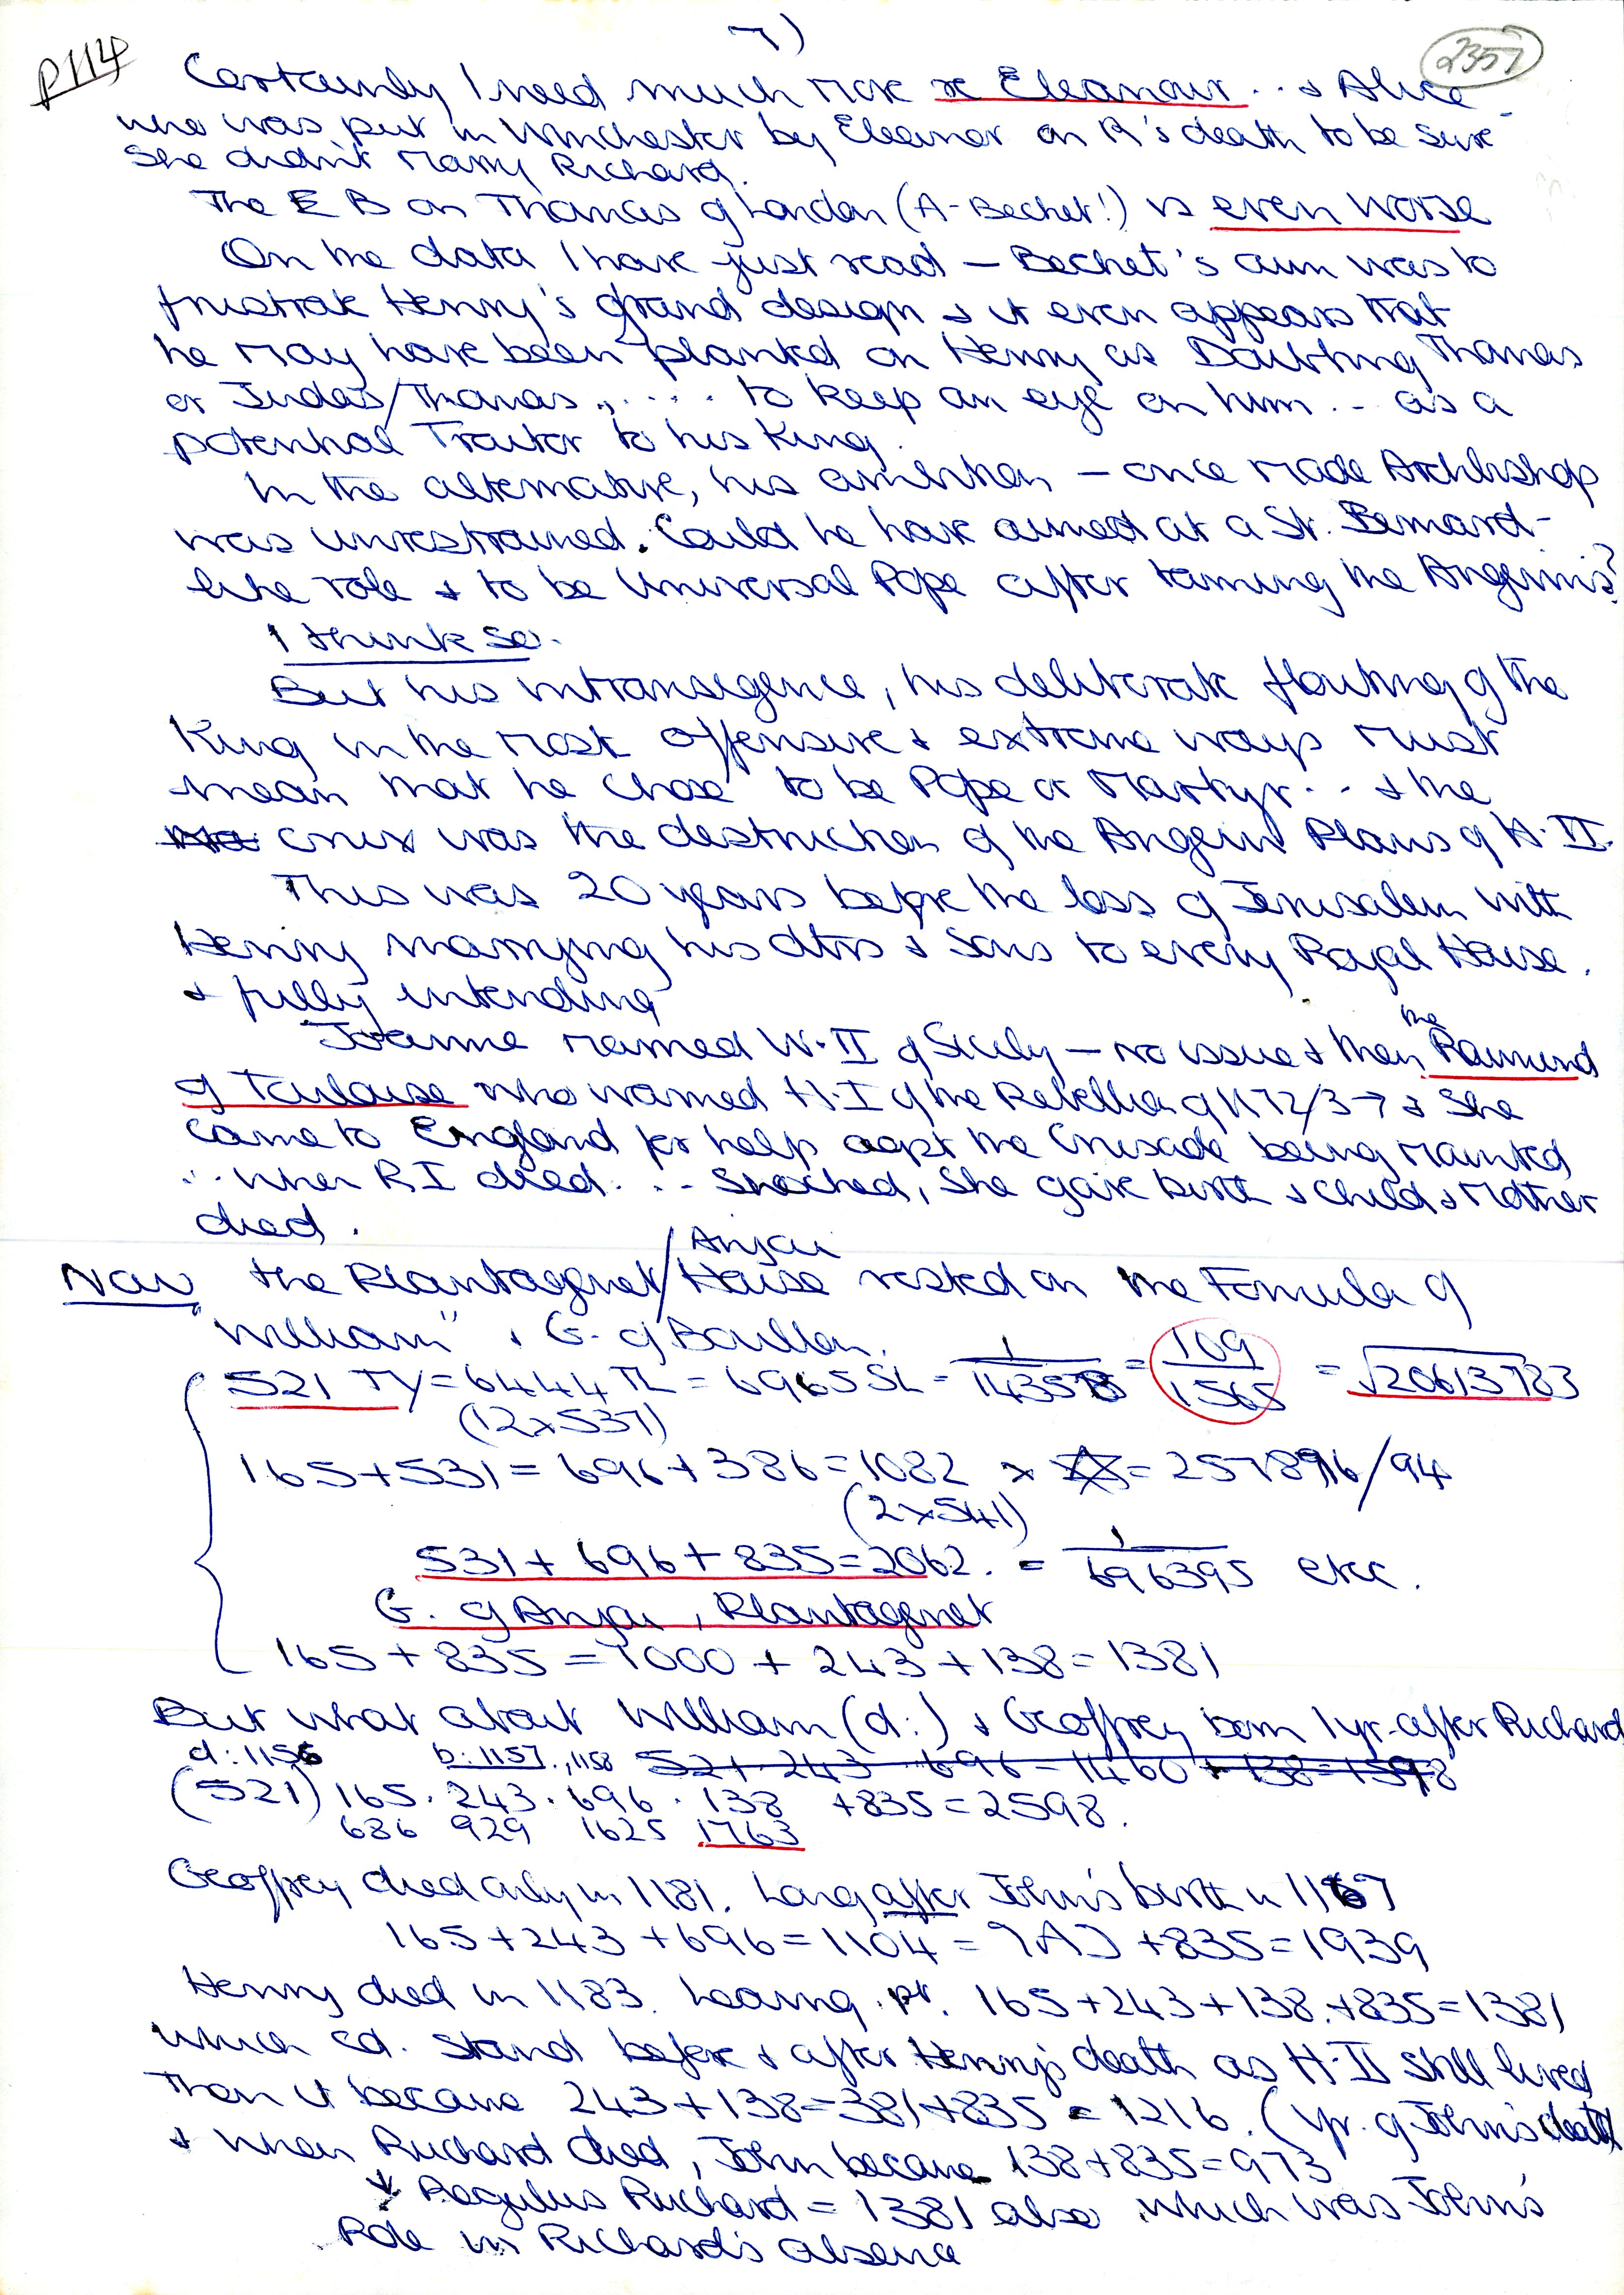 7)
P114
2357
Certainly I need much more re Eleanour . . & Alice
who was put in Winchester by Eleanor on R's death to be sure
she didn't marry Richard.
The E B on Thomas of London (A-Becket!) is even worse
On the data I have just read – Becket's aim was to
frustrate Henry's grand design & it even appears that
he may have been planted on Henry as Doubting Thomas
or Judas/Thomas . . . . . to keep an eye on him . . as a
potential Traitor to his King.
In the alternative, his ambition – once made Archbishop
was unrestrained. Could he have aimed at a St. Bernard-
like role & to be Universal Pope after taming the Angevins?
I think so.
But his intransigence, his deliberate flouting of the
King in the most offensive & extreme ways must
mean that he chose to be Pope or Martyr . . & the
crux was the destruction of the Angevin Plans of H.II.
This was 20 years before the loss of Jerusalem with
Henry marrying his dtrs & sons to every Royal House.
& fully intending
Joanne married W.II of Sicily – no issue & then the Raimund
of Toulouse who warned H.I of the Rebellion of 1172/3 → & she
came to England for help agst the Crusade being mounted
. . when R I died . . . Shocked, she gave birth & child & mother
died.
Now the Plantagenet/Anjou House rested on the Formula of
"William" & G. of Bouillon.
521 TY = 6444 TL = 6965 SL = 1/143578 = 109/1565 = √20613783
(12x537)
165+531 = 696+386 = 1082 x = 257896/94
(2x541)
531 + 696 + 835 = 2062. = 1/696395 etc.
G. of Anjou, Plantagenet
165 + 835 = 1000 + 243 + 138 = 1381
But what about William (d:) & Geoffrey born 1 yr. after Richard
d: 1156 b: 1157., 1158 521 · 243 · 696 = 1460 + 138 = 1598
(521) 165 · 243 · 696 · 138 +835 = 2598.
686 929 1625 1763
Geoffrey died only in 1181. Long after John's birth in 1167
165 + 243 + 696 = 1104 = +835 = 1939
Henry died in 1183. Leaving pr. 165+243+138.+835=1381
which cd. stand before & after Henry's death as H.II still lived
Then it became 243+138=381+835 = 1216. (yr. of John's death)
& when Richard died, John became 138+835=973
↓ Regulus Richard = 1381 also which was John's
Role in Richard's absence